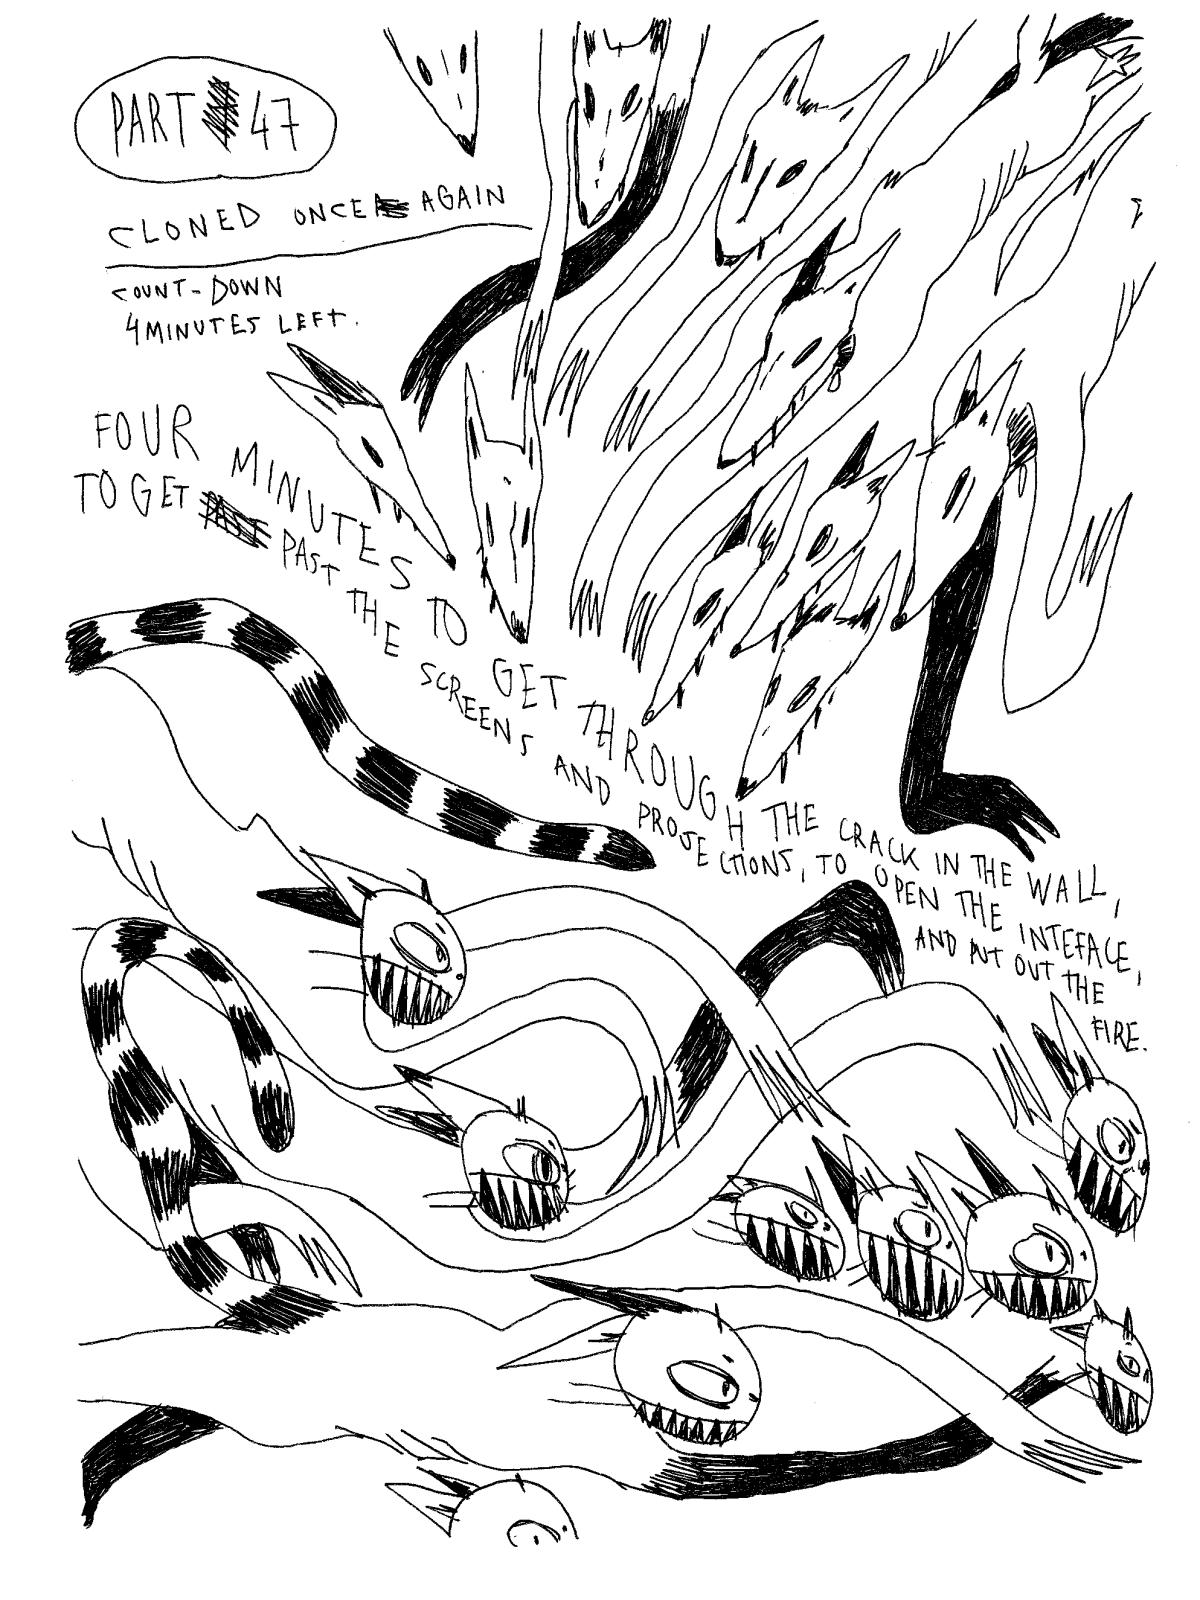 PART 47
CLONED ONCE AGAIN
COUNT-DOWN
4 MINUTES LEFT.
FOUR MINUTES TO GET THROUGH THE CRACK IN THE WALL,
TO GET PAST PAST THE SCREENS AND PROJECTIONS, TO OPEN THE INTEFACE,
AND PUT OUT THE
FIRE.